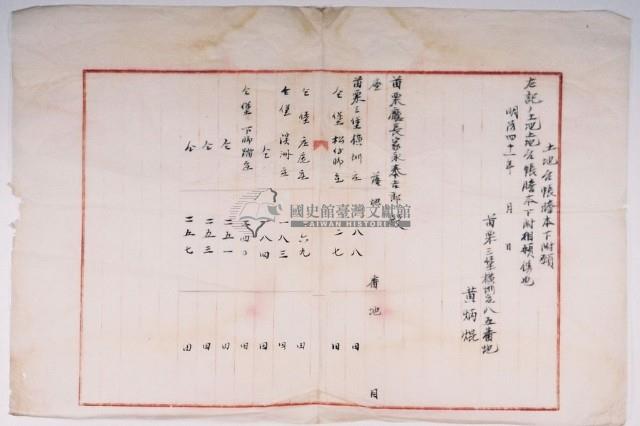 土地台帳謄本下附願
左記ノ土地土地台帳謄本下附相願候也
明治四十一年 月 日
苗栗三堡橫洲庄八五番地
黃炳焜
苗栗廳長家永泰吉郎殿
庄 番地 目
苗栗三堡 庄 八八 田
仝堡 松仔脚庄 七 田
仝堡 庄尾庄 六九 田
仝堡 溪洲庄 一八三 田
仝 八四 田
仝堡 下脚踏庄 四〇 田
仝 二五一 田
仝 二五三 田
仝 二五七 田
國史館臺灣文獻館
TAIWAN HISTORICA